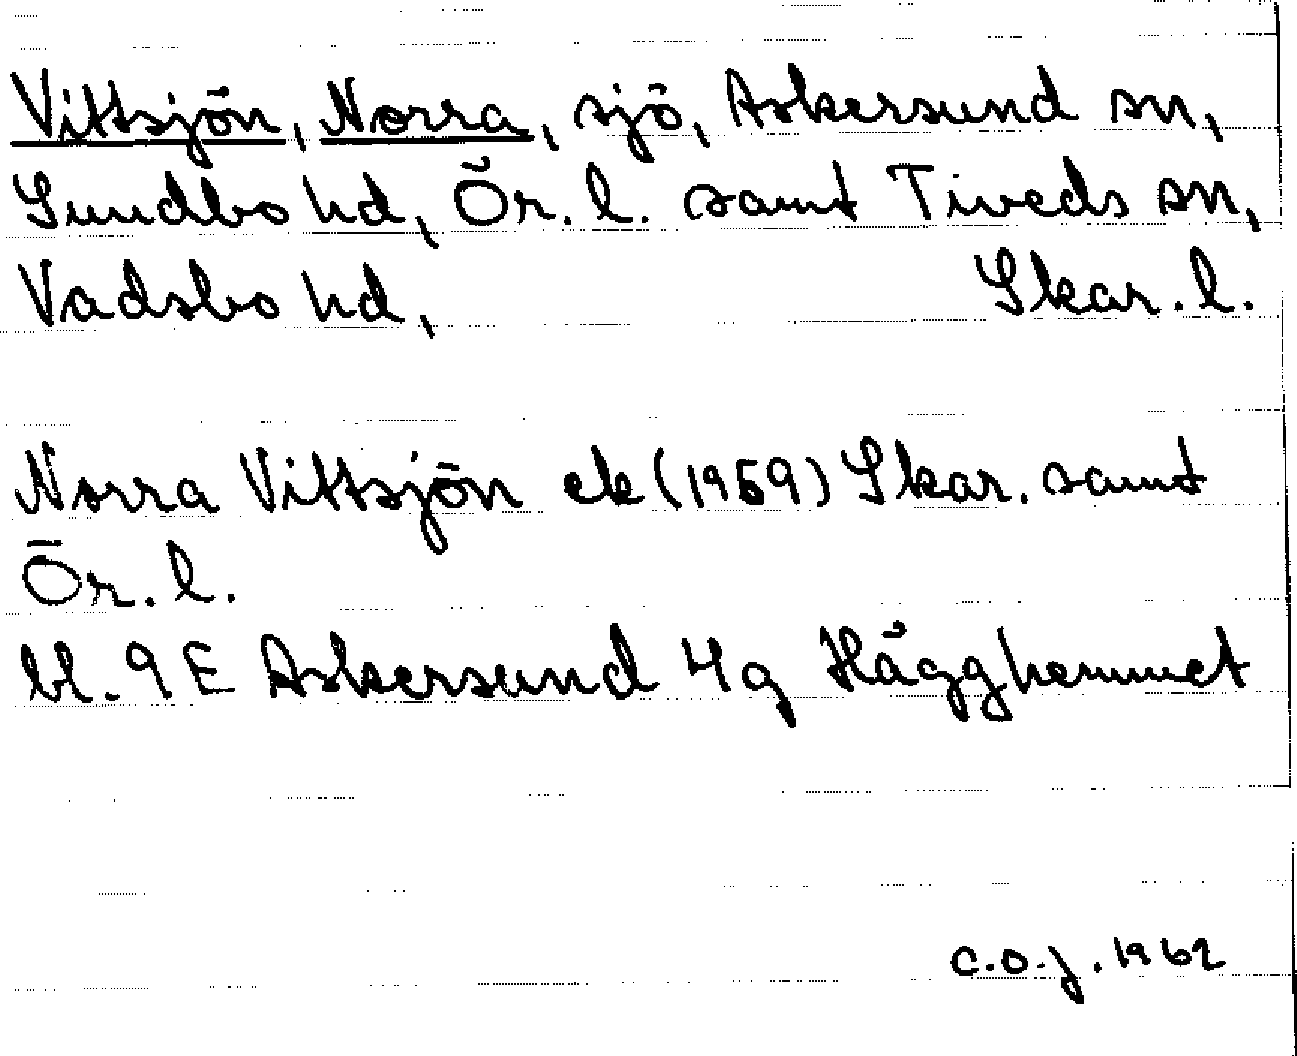 Vittsjön, Norra, sjö, Askersund sn,
Sundbo hd, Ör. l. samt Tiveds sn,
Vadsbo hd, Skar. l.
Norra Vittsjön ek (1959) Skar. samt
Ör. l.
bl. 9E Askersund 4g Hågghemmet
C.O.J. 1962